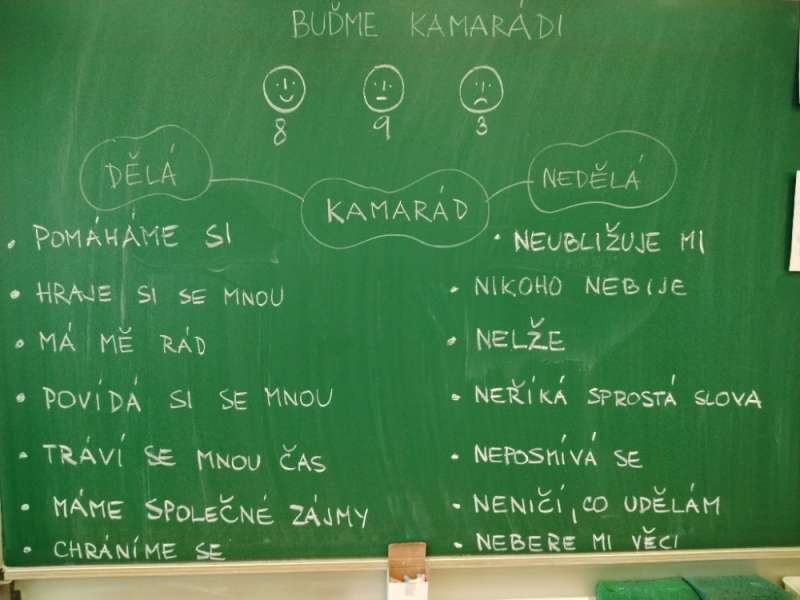 BUĎME KAMARÁDI
8 9 3
DĚLÁ
KAMARÁD
NEDĚLÁ
• POMÁHÁME SI
• HRAJE SI SE MNOU
• MÁ MĚ RÁD
• POVÍDÁ SI SE MNOU
• TRÁVÍ SE MNOU ČAS
• MÁME SPOLEČNÉ ZÁJMY
• CHRÁNÍME SE
• NEUBLIŽUJE MI
• NIKOHO NEBIJE
• NELŽE
• NEŘÍKÁ SPROSTÁ SLOVA
• NEPOSMÍVÁ SE
• NENIČÍ, CO UDĚLÁM
• NEBERE MI VĚCI